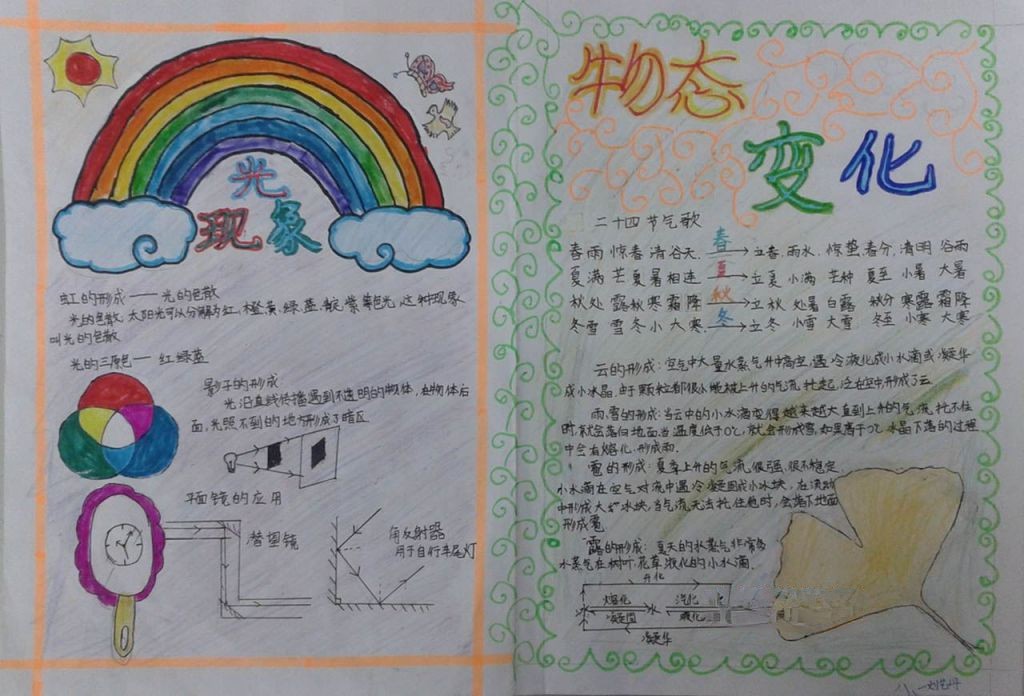 光
现象
虹的形成——光的色散
光的色散:太阳光可以分解为红、橙、黄、绿、蓝、靛、紫等色光,这种现象
叫光的色散
光的三原色——红绿蓝
影子的形成:
光沿直线传播遇到不透明的物体,在物体后
面,光照不到的地方形成了暗区
平面镜的应用
潜望镜
角反射器
用于自行车尾灯
物态
变化
二十四节气歌
春雨惊春清谷天 春 立春 雨水 惊蛰 春分 清明 谷雨
夏满芒夏暑相连 夏 立夏 小满 芒种 夏至 小暑 大暑
秋处露秋寒霜降 秋 立秋 处暑 白露 秋分 寒露 霜降
冬雪雪冬小大寒 冬 立冬 小雪 大雪 冬至 小寒 大寒
云的形成:空气中大量水蒸气升中高空,遇冷液化成小水滴或凝华
成小冰晶,由于颗粒都很小能被上升的气流托起,泛在空中形成了云
雨,雪的形成:当云中的小水滴变得越来越大直到上升的气流托不住
时,就会落向地面当温度低于0℃,就会形成雪,如果高于0℃冰晶下落的过程
中会有熔化,形成雨.
雹的形成:夏季上升的气流很强,很不稳定,
小水滴在空气对流中遇冷凝固成小冰块,在流动
中形成大冰块,当气流无法托住他时,会落下地面
形成雹
露的形成:夏天的水蒸气非常多
水蒸气在树叶,花草液化的小水滴.
升化
熔化 汽化
冰 水
凝固 液化
凝华